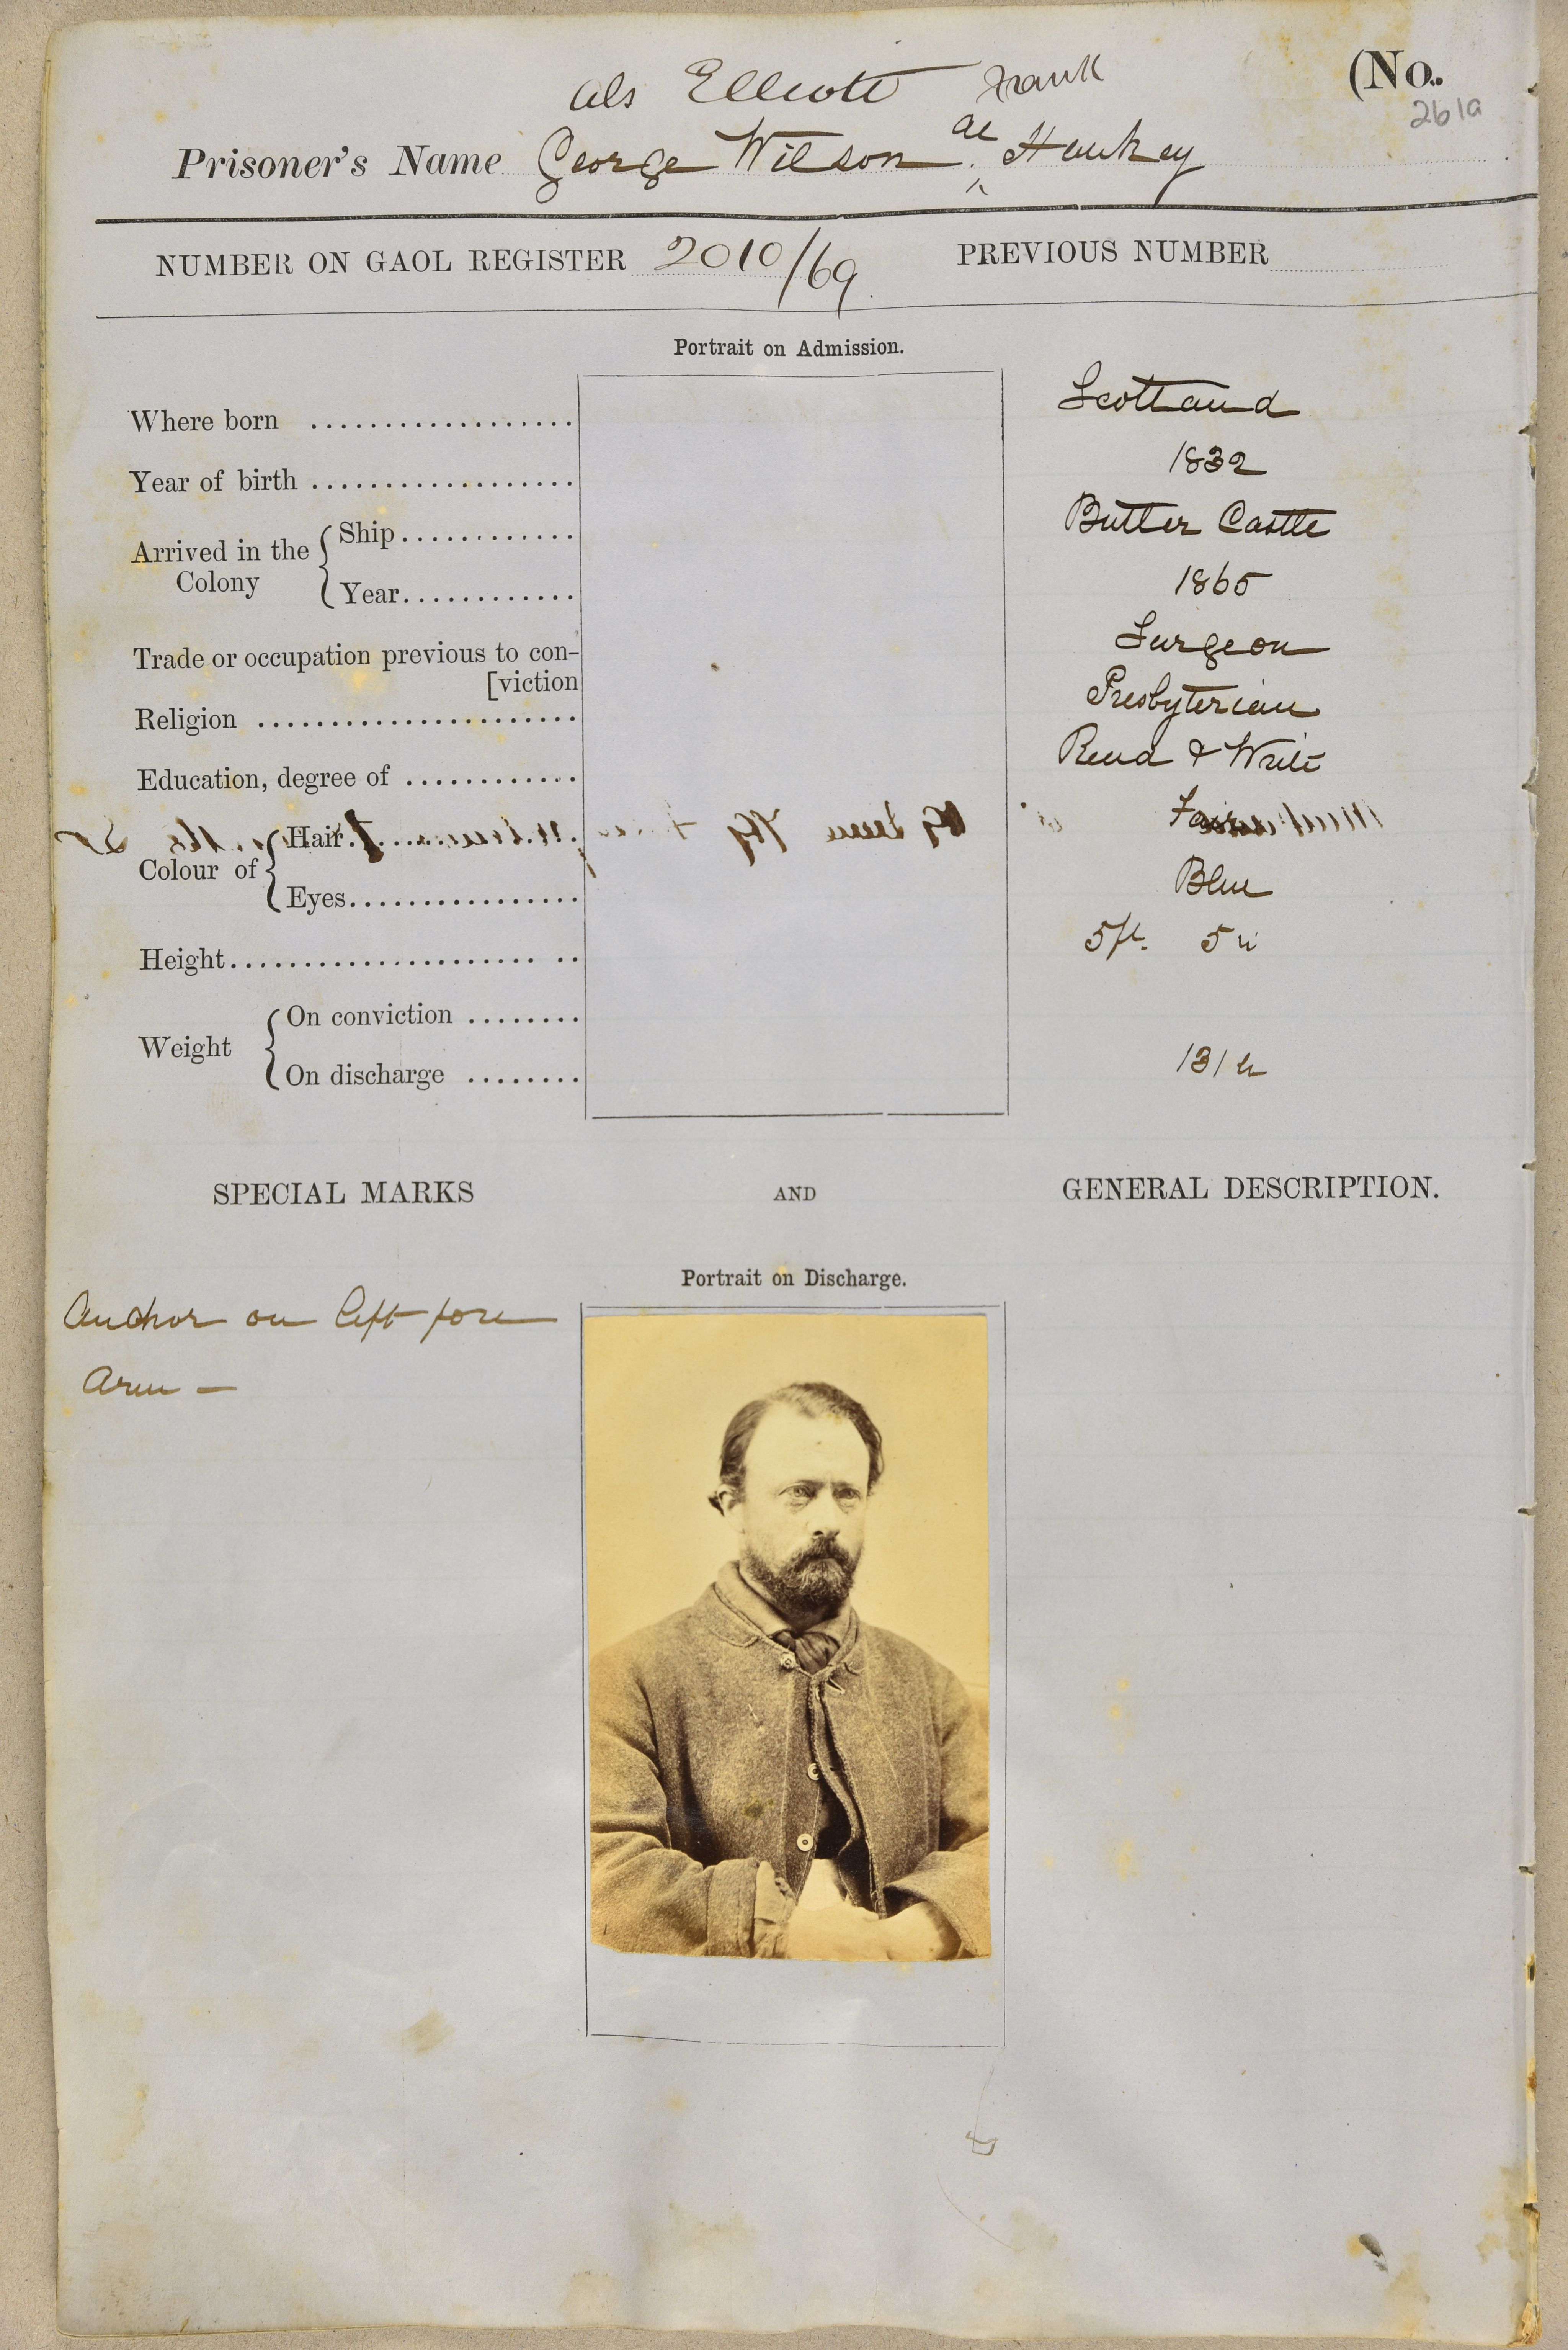 als Elliott Frank
(No.
261a
Prisoner's Name George Wilson al Hankey
NUMBER ON GAOL REGISTER 2010/69. PREVIOUS NUMBER
Portrait on Admission.
Where born Scotland
Year of birth 1832
Arrived in the Colony { Ship Butter Castle
Year 1865
Trade or occupation previous to con-
[viction Surgeon
Religion Presbyterian
Education, degree of Read & Write
Colour of { Hair Fair
Eyes Blue
Height 5ft. 5 in
Weight { On conviction
On discharge 131 lb
SPECIAL MARKS AND GENERAL DESCRIPTION.
Portrait on Discharge.
Anchor on left fore
Arm —